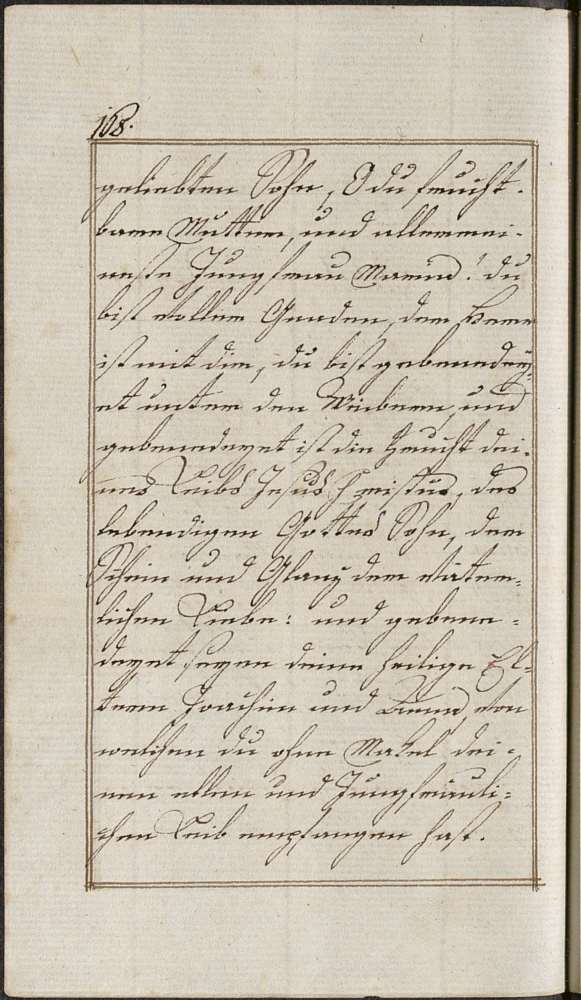 168.
geliebten Sohn, O du frucht-
bare Mutter, und allerrei-
neste Jungfrau Maria! du
bist voller Gnaden, der Herr
ist mit dir, du bist gebenedey-
et unter den Weibern, und
gebenedeyet ist die Frucht dei-
nes Leibs Jesus Christus, des
lebendigen Gottes Sohn, der
Schein und Glanz der väter-
lichen Liebe: und gebene-
deyet seyen deine heilige El-
tern Joachim und Anna, von
welchen du ohne Makel dei-
nen edlen und Jungfräuli-
chen Leib empfangen hast.